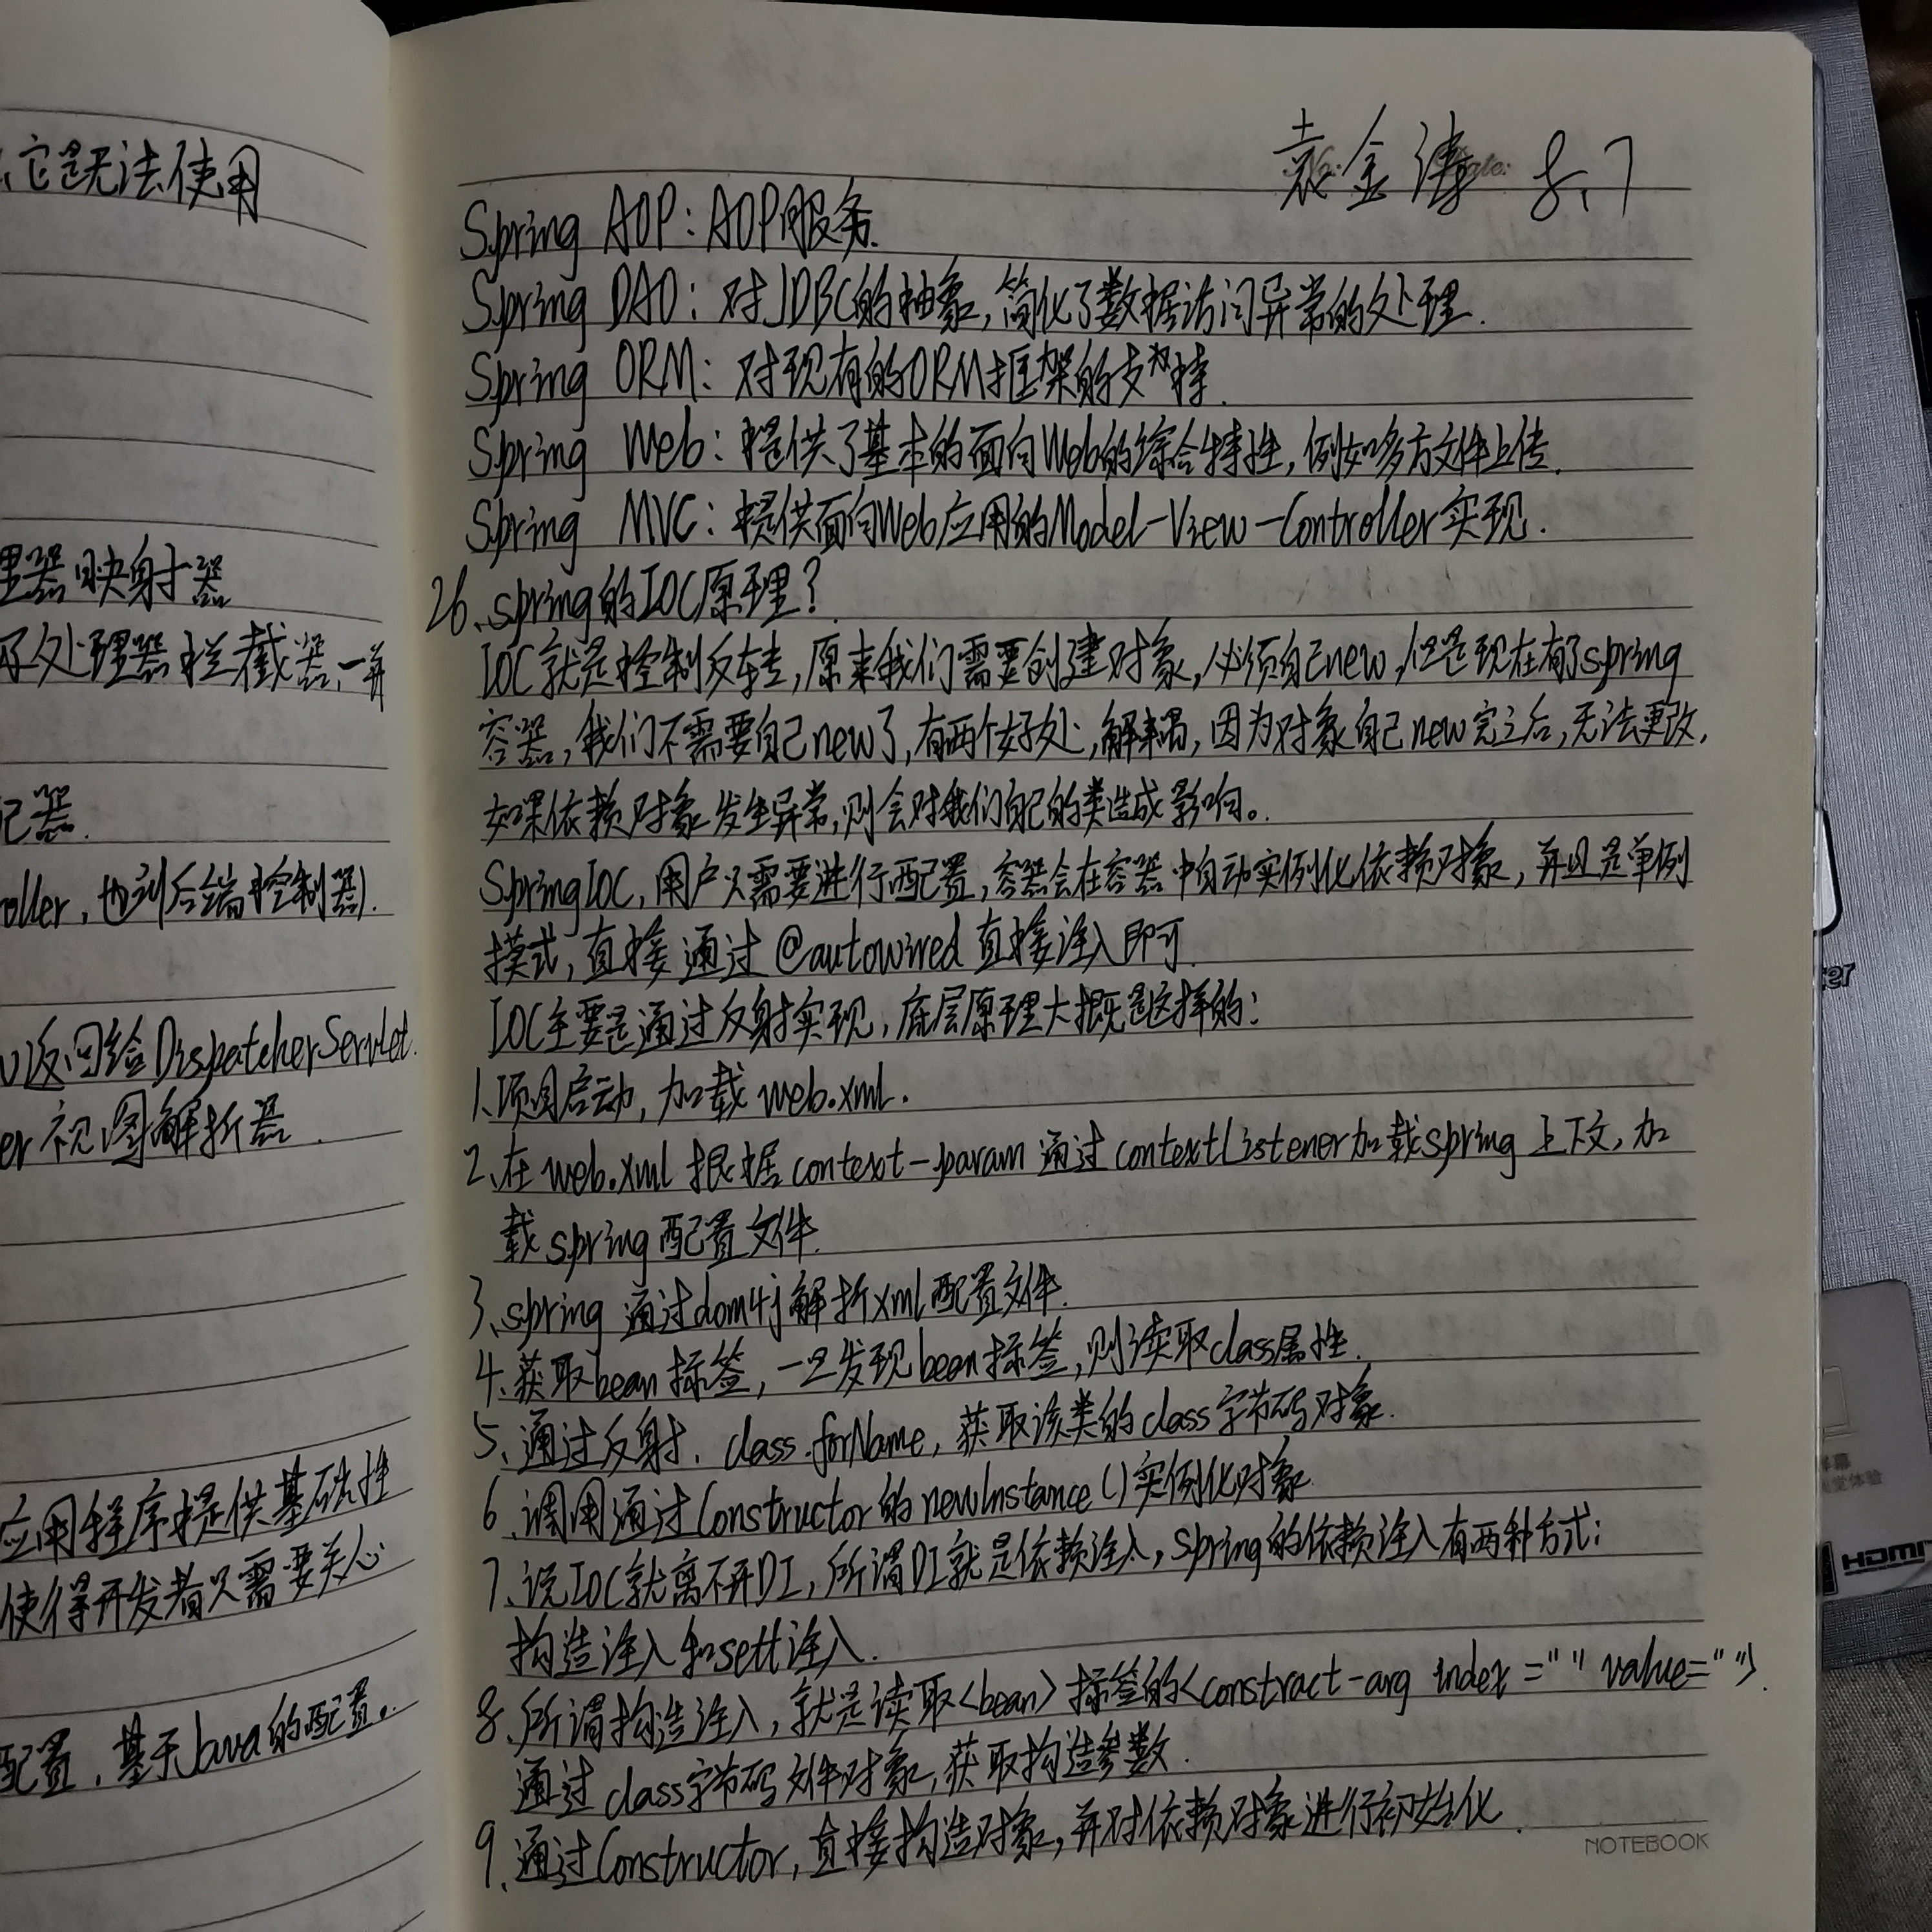 它是无法使用
理器映射器
处理器拦截器,一并
配器.
roller,也叫后端控制器).
返回给DispatcherServlet.
er视图解析器.
应用程序提供基础性
使得开发者只需要关心
配置,基于Java的配置。
袁金涛 8.7
Date:
Spring AOP:AOP服务.
Spring DAO:对JDBC的抽象,简化了数据访问异常的处理.
Spring ORM:对现有的ORM框架的支持.
Spring Web:提供了基本的面向Web的综合特性,例如多方文件上传.
Spring MVC:提供面向Web应用的Model-View-Controller实现.
26、spring的IOC原理?
IOC就是控制反转,原来我们需要创建对象,必须自己new,但是现在有了spring
容器,我们不需要自己new了,有两个好处,解耦,因为对象自己new完之后,无法更改,
如果依赖对象发生异常,则会对我们自己的类造成影响。
SpringIOC,用户只需要进行配置,容器会在容器中自动实例化依赖对象,并且是单例
模式,直接通过@autowired直接注入即可.
IOC主要是通过反射实现,底层原理大概是这样的:
1、项目启动,加载web.xml.
2、在web.xml根据context-param通过contextListener加载spring上下文,加
载spring配置文件.
3、spring通过dom4j解析xml配置文件.
4、获取bean标签,一旦发现bean标签,则读取class属性.
5、通过反射.class.forName,获取该类的class字节码对象.
6、调用通过Constructor的newInstance()实例化对象.
7、说IOC就离不开DI,所谓DI就是依赖注入,spring的依赖注入有两种方式:
构造注入和sett注入.
8、所谓构造注入,就是读取<bean>标签的<constract-arg index="" value="">.
通过class字节码文件对象,获取构造参数.
9、通过Constructor,直接构造对象,并对依赖对象进行初始化.
NOTEBOOK
HDMI